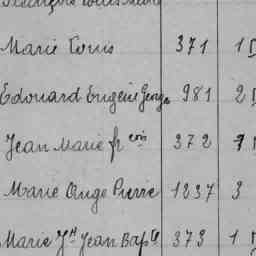 Marie Louis 371 1
Edouard Eugène George 981 2
Jean Marie fr çois 372 1
Marie Ange Pierre 1237 3
Marie Jh Jean Bapte 373 1